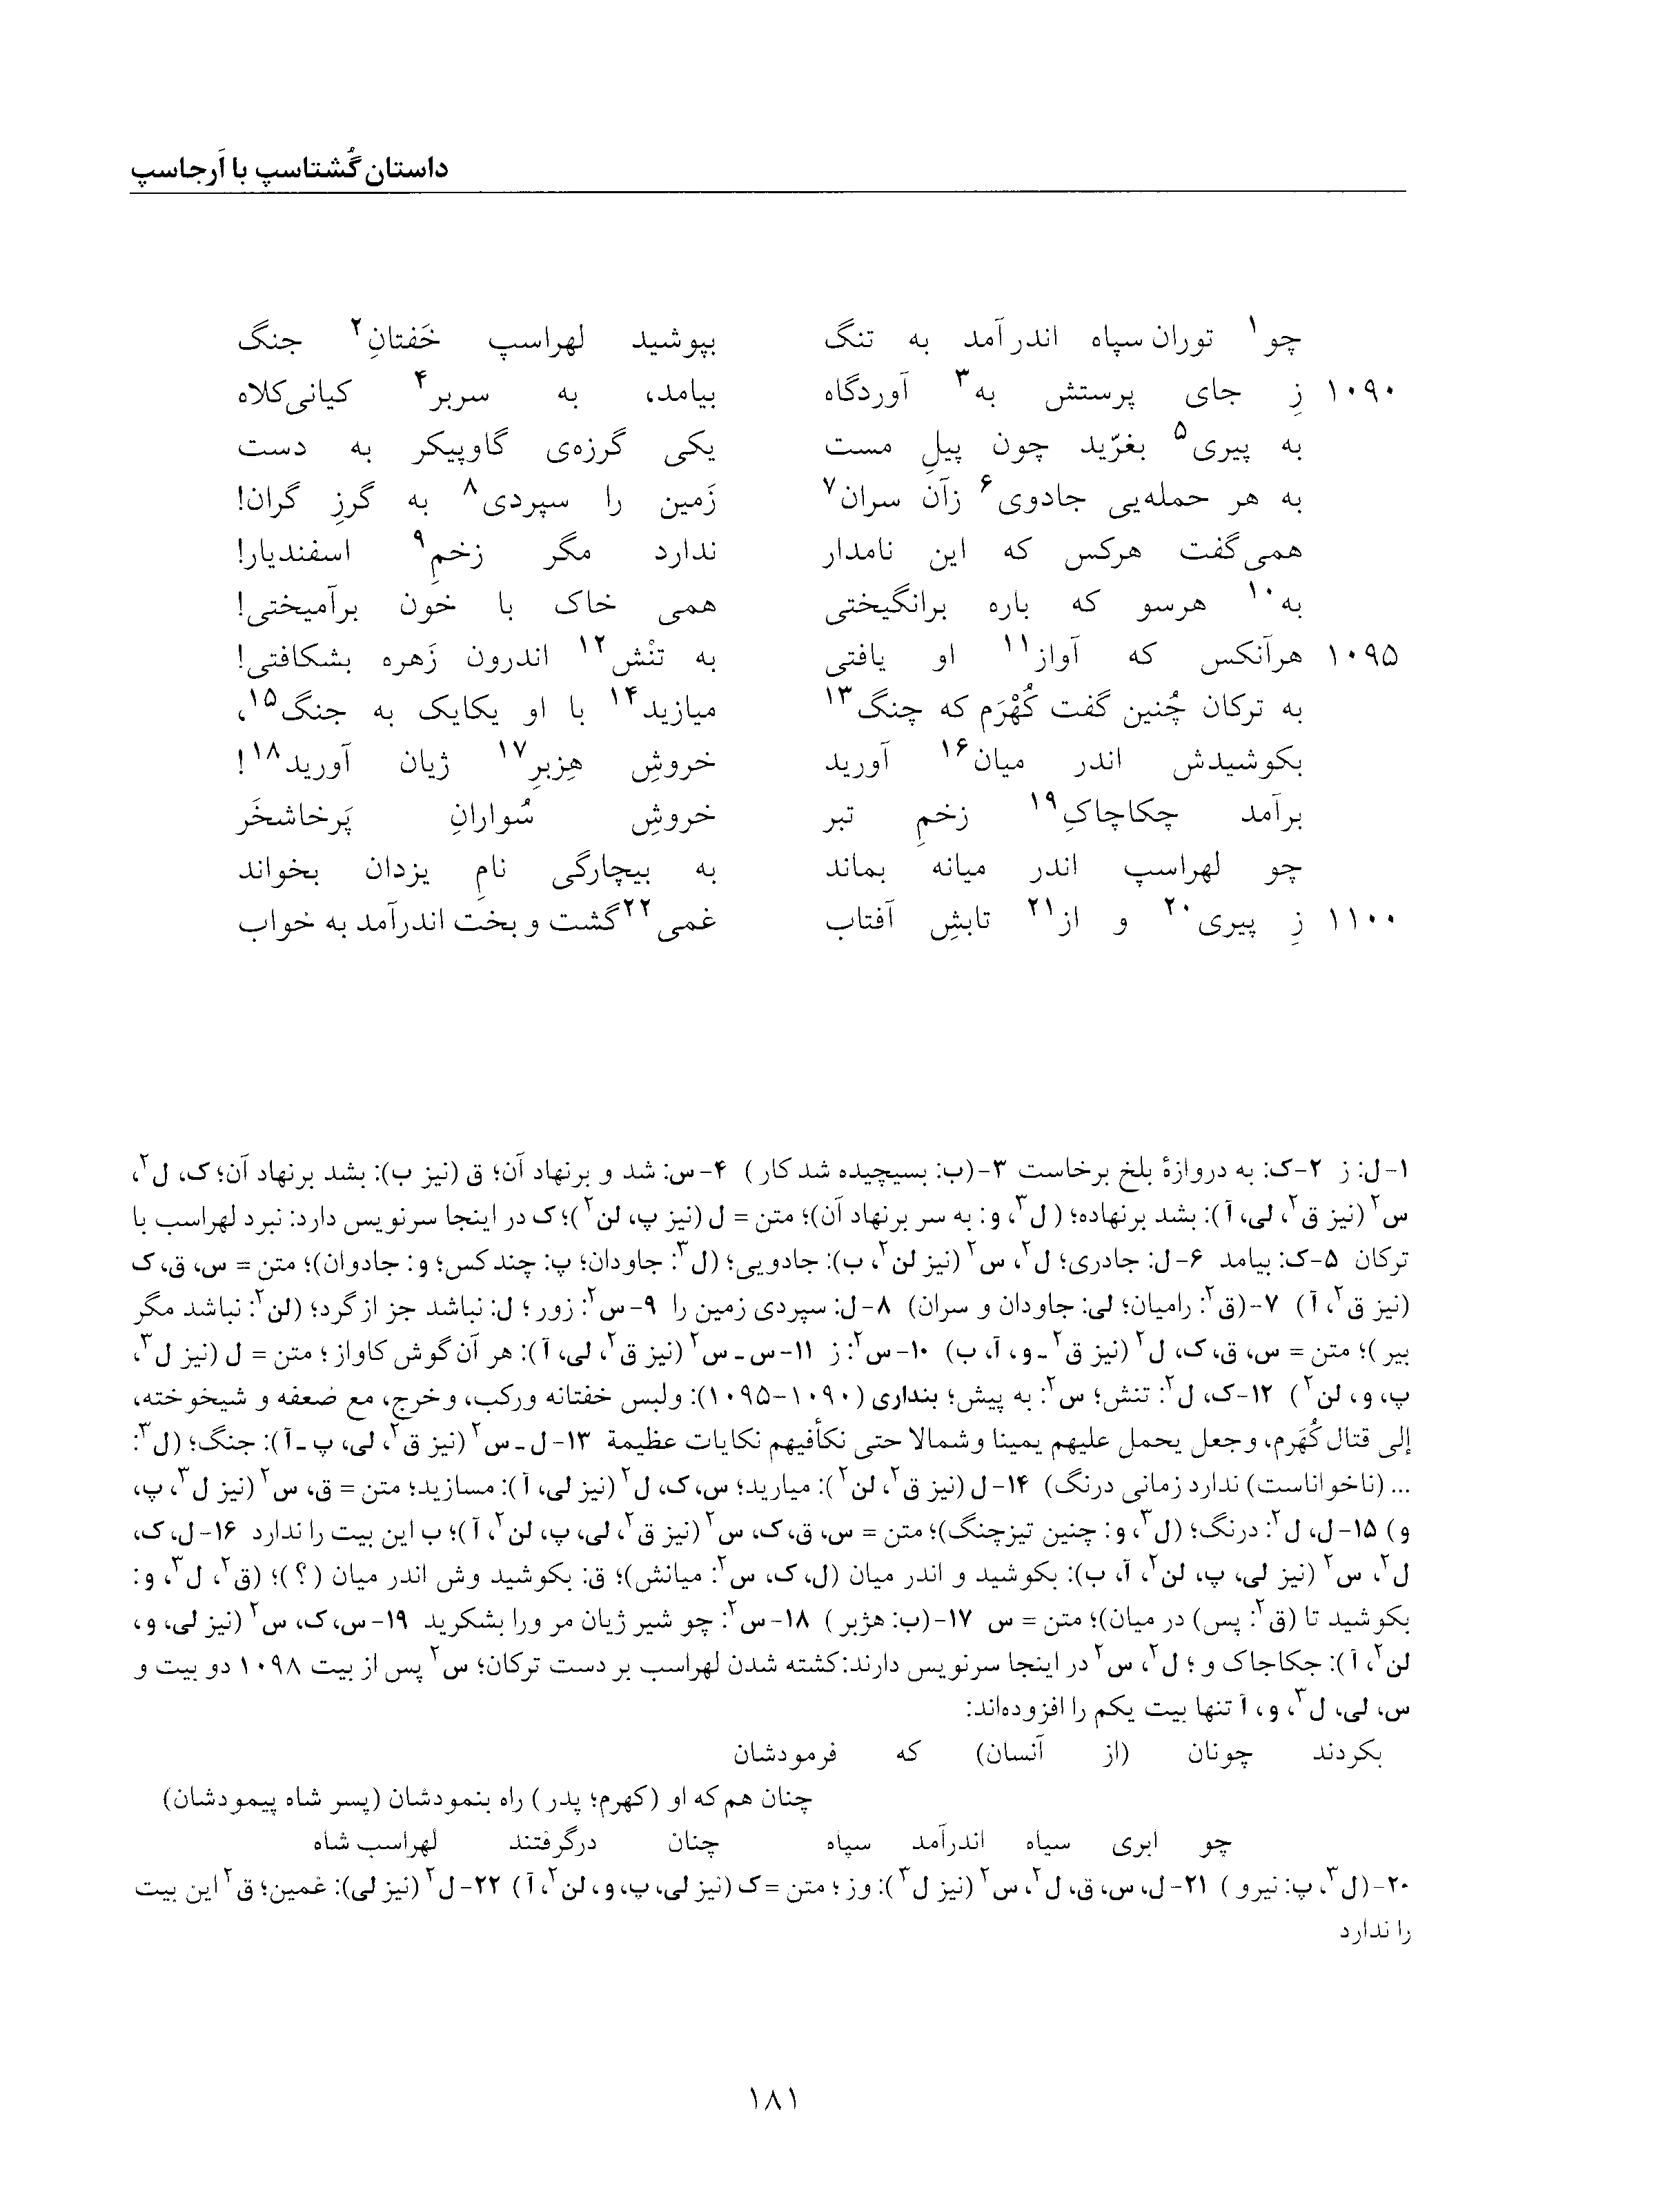 داستان گُشتاسپ با اَرجاسپ
چو۱ توران سپاه اندر آمد به تنگ بپوشید لهراسپ خَفتانِ۲ جنگ
۱۰۹۰ زِ جای پرستش به۳ آوردگاه بیامد، به سربر۴ کیانی‌کلاه
به پیری۵ بغرّید چون پیلِ مست یکی گرزه‌ی گاوپیکر به دست
به هر حمله‌یی جادوی۶ زآن سران۷ زَمین را سپردی۸ به گرزِ گران!
همی‌گفت هرکس که این نامدار ندارد مگر زخمِ۹ اسفندیار!
به۱۰ هرسو که باره برانگیختی همی خاک با خون برآمیختی!
۱۰۹۵ هرآنکس که آواز۱۱ او یافتی به تنْش۱۲ اندرون زَهره بشکافتی!
به ترکان چُنین گفت کُهْرَم که چنگ۱۳ میازید۱۴ با او یکایک به جنگ۱۵،
بکوشیدش اندر میان۱۶ آورید خروشِ هِزبرِ۱۷ ژیان آورید۱۸!
برآمد چکاچاکِ۱۹ زخمِ تبر خروشِ سُوارانِ پَرخاشخَر
چو لهراسپ اندر میانه بماند به بیچارگی نامِ یزدان بخواند
۱۱۰۰ زِ پیری۲۰ و از۲۱ تابشِ آفتاب غمی۲۲ گشت و بخت اندرآمد به خواب
۱-ل: ز ۲-ک: به دروازهٔ بلخ برخاست ۳-(ب: بسیچیده شد کار) ۴-س: شد و برنهاد آن؛ ق (نیز ب): بشد برنهاد آن؛ ک، ل۲،
س۲ (نیز ق۲، لی، آ): بشد برنهاده؛ (ل۳، و: به سر برنهاد آن)؛ متن = ل (نیز پ، لن۲)؛ ک در اینجا سرنویس دارد: نبرد لهراسب با
ترکان ۵-ک: بیامد ۶-ل: جادری؛ ل۲، س۲ (نیز لن۲، ب): جادویی؛ (ل۳: جاودان؛ پ: چند کس؛ و: جادوان)؛ متن = س، ق، ک
(نیز ق۲، آ) ۷-(ق۲: رامیان؛ لی: جاودان و سران) ۸-ل: سپردی زمین را ۹-س۲: زور؛ ل: نباشد جز از گرد؛ (لن۲: نباشد مگر
بیر)؛ متن = س، ق، ک، ل۲ (نیز ق۲ ـ و، آ، ب) ۱۰-س۲: ز ۱۱-س ـ س۲ (نیز ق۲، لی، آ): هر آن گوش کاواز؛ متن = ل (نیز ل۳،
پ، و، لن۲) ۱۲-ک، ل۲: تنش؛ س۲: به پیش؛ بنداری (۱۰۹۰-۱۰۹۵): ولبس خفتانه ورکب، وخرج، مع ضعفه و شیخوخته،
إلی قتال کُهَرم، وجعل یحمل علیهم یمینا وشمالا حتی نکأفیهم نکایات عظیمة ۱۳-ل ـ س۲ (نیز ق۲، لی، پ ـ آ): جنگ؛ (ل۳:
... (ناخواناست) ندارد زمانی درنگ) ۱۴-ل (نیز ق۲، لن۲): میارید؛ س، ک، ل۲ (نیز لی، آ): مسازید؛ متن = ق، س۲ (نیز ل۳، پ،
و) ۱۵-ل، ل۲: درنگ؛ (ل۳، و: چنین تیزچنگ)؛ متن = س، ق، ک، س۲ (نیز ق۲، لی، پ، لن۲، آ)؛ ب این بیت را ندارد ۱۶-ل، ک،
ل۲، س۲ (نیز لی، پ، لن۲، آ، ب): بکوشید و اندر میان (ل، ک، س۲: میانش)؛ ق: بکوشید وش اندر میان (؟)؛ (ق۲، ل۳، و:
بکوشید تا (ق۲: پس) در میان)؛ متن = س ۱۷-(ب: هژبر) ۱۸-س۲: چو شیر ژیان مر ورا بشکرید ۱۹-س، ک، س۲ (نیز لی، و،
لن۲، آ): جکاجاک و؛ ل۲، س۲ در اینجا سرنویس دارند: کشته شدن لهراسب بر دست ترکان؛ س۲ پس از بیت ۱۰۹۸ دو بیت و
س، لی، ل۳، و، آ تنها بیت یکم را افزوده‌اند:
بکردند چونان (از آنسان) که فرمودشان
چنان هم که او (کهرم؛ پدر) راه بنمودشان (پسر شاه پیمودشان)
چو ابری سیاه اندرآمد سپاه چنان درگرفتند لهراسب شاه
۲۰-(ل۳، پ: نیرو) ۲۱-ل، س، ق، ل۲، س۲ (نیز ل۳): وز؛ متن = ک (نیز لی، پ، و، لن۲، آ) ۲۲-ل۲ (نیز لی): غمین؛ ق۲ این بیت
را ندارد
۱۸۱